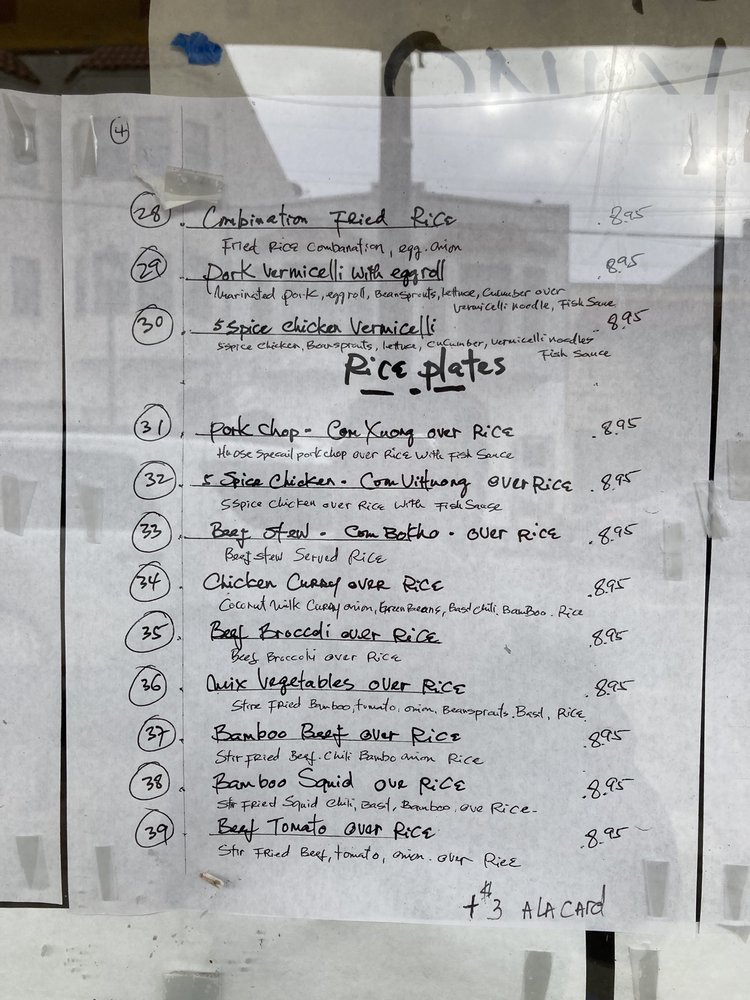 4
28. Combination Fried Rice 8.95
Fried Rice Combanation, egg. onion
29. Pork Vermicelli with eggroll 8.95
Marinated pork, eggroll, Beansprouts, lettuce, Cucumber over
vermicelli noodle, Fish Sauce
30. 5 Spice chicken Vermicelli 8.95
5spice chicken, Beansprouts, lettuce, cucumber, vermicelli noodles
Fish Sauce
Rice plates
31. pork chop - Com Xuong over Rice 8.95
House Specail pork chop over Rice with Fish Sance
32. 5 Spice Chicken - Com Vit Huong over Rice 8.95
5 Spice Chicken over Rice with Fish Sause
33. Beef stew - Com Bo Kho - over rice 8.95
Beef stew Served Rice
34. Chicken Curry over Rice 8.95
Coconut milk Curry onion, Green Beans, Basil Chili, BamBoo. Rice
35. Beef Broccoli over Rice 8.95
Beef Broccoli over Rice
36. mix Vegetables over Rice 8.95
Stire Fried Bamboo, tomato, onion, Beansprouts. Basl, Rice
37. Bamboo Beef over Rice 8.95
Stir Fried Beef. Chili Bambo onion Rice
38. Bamboo Squid ove Rice 8.95
Stir Fried Squid Chili, Basl, Bamboo, ove Rice-
39. Beef Tomato over Rice 8.95
Stir Fried Beef, tomato, onion. over Rice
+$3 ALACARD